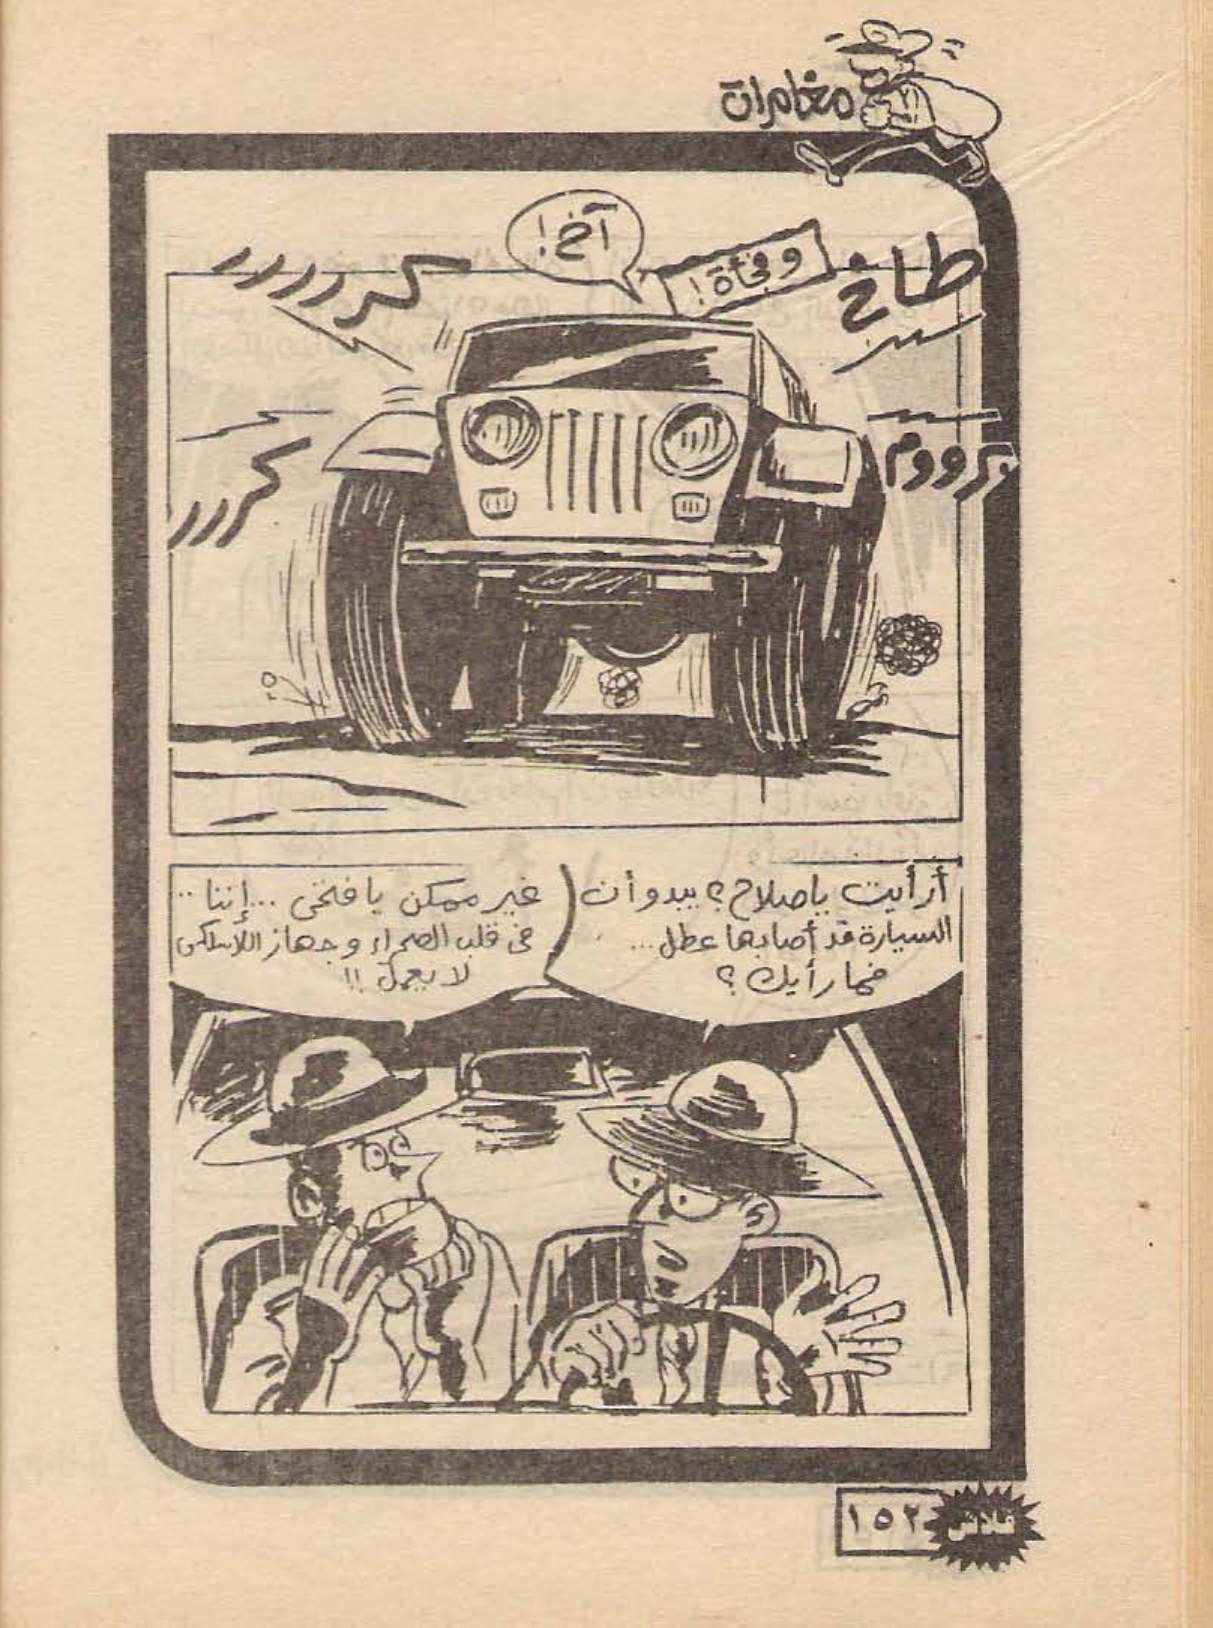 مغامرات
طاخ
وفجأة!
آخ!
كررررر
بروووم
كررر
أرأيت ياصلاح؟ يبدو أن
السيارة قد أصابها عطل...
فما رأيك؟
غير ممكن يا فتحى ...إننا..
فى قلب الصحراء وجهاز اللاسلكى
لا يعمل !!
فلاش
١٥٢